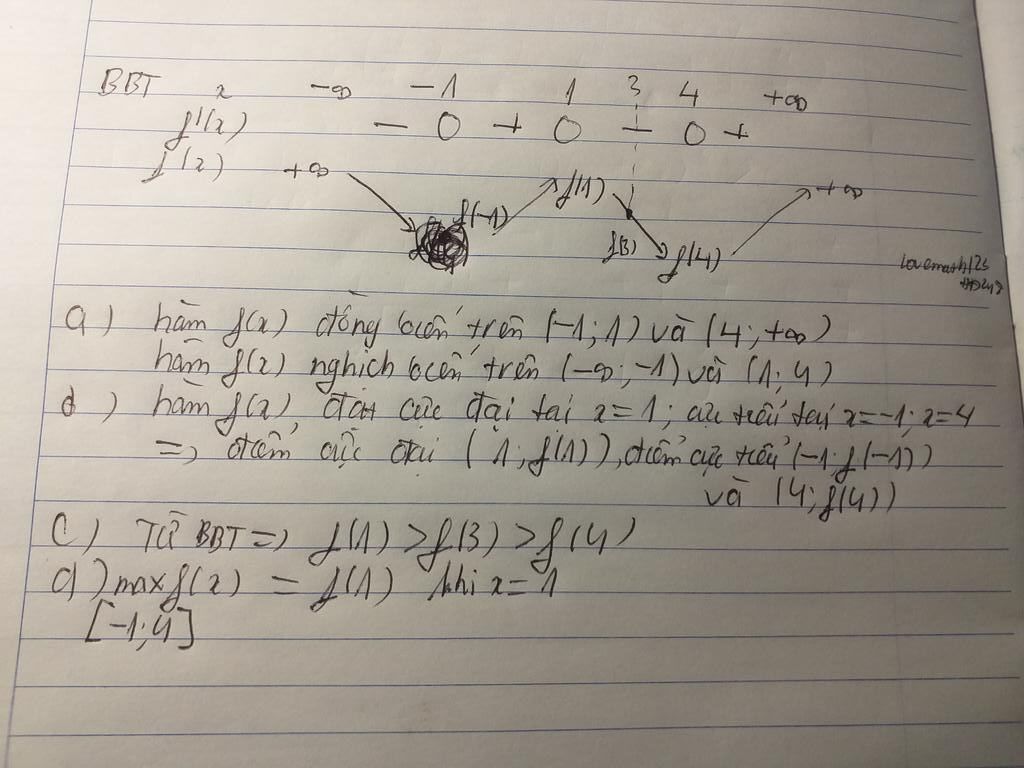 BBT x -∞ -1 1 3 4 +∞
f'(x) - 0 + 0 - 0 +
f(x) +∞ f(-1) f(1) f(3) f(4) +∞
a) hàm f(x) đồng biến trên (-1; 1) và (4; +∞)
hàm f(x) nghịch biến trên (-∞; -1) và (1; 4)
b) hàm f(x) đạt cực đại tại x=1; cực tiểu tại x=-1; x=4
=> điểm cực đại (1; f(1)), điểm cực tiểu (-1; f(-1))
và (4; f(4))
c) Từ BBT => f(1) > f(3) > f(4)
d) max f(x) = f(1) khi x=1
[-1; 4]